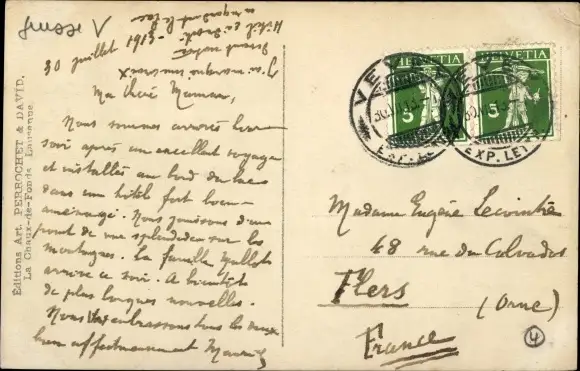 Suisse V
Hôtel
en regardant le lac
30 juillet 1913
J'ai marqué
devant notre
Ma chère Maman,
Nous sommes arrivés hier
soir après un excellent voyage
et installés au bord du lac
dans un hôtel fort bien
aménagé. Nous jouissons d'un
point de vue splendide sur les
montagnes. La famille
arrive ce soir. A bientôt
de plus longues nouvelles.
Nous embrassons tous les deux
bien affectueusement
Éditions Art. PERROCHET & DAVID,
La Chaux-de-Fonds Lausanne
HELVETIA
HELVETIA
5
5
VEVEY
EXP. LET.
VEVEY
EXP. LET.
Madame Eugène Lecointre
48 rue du Calvados
Flers
(Orne)
France
4